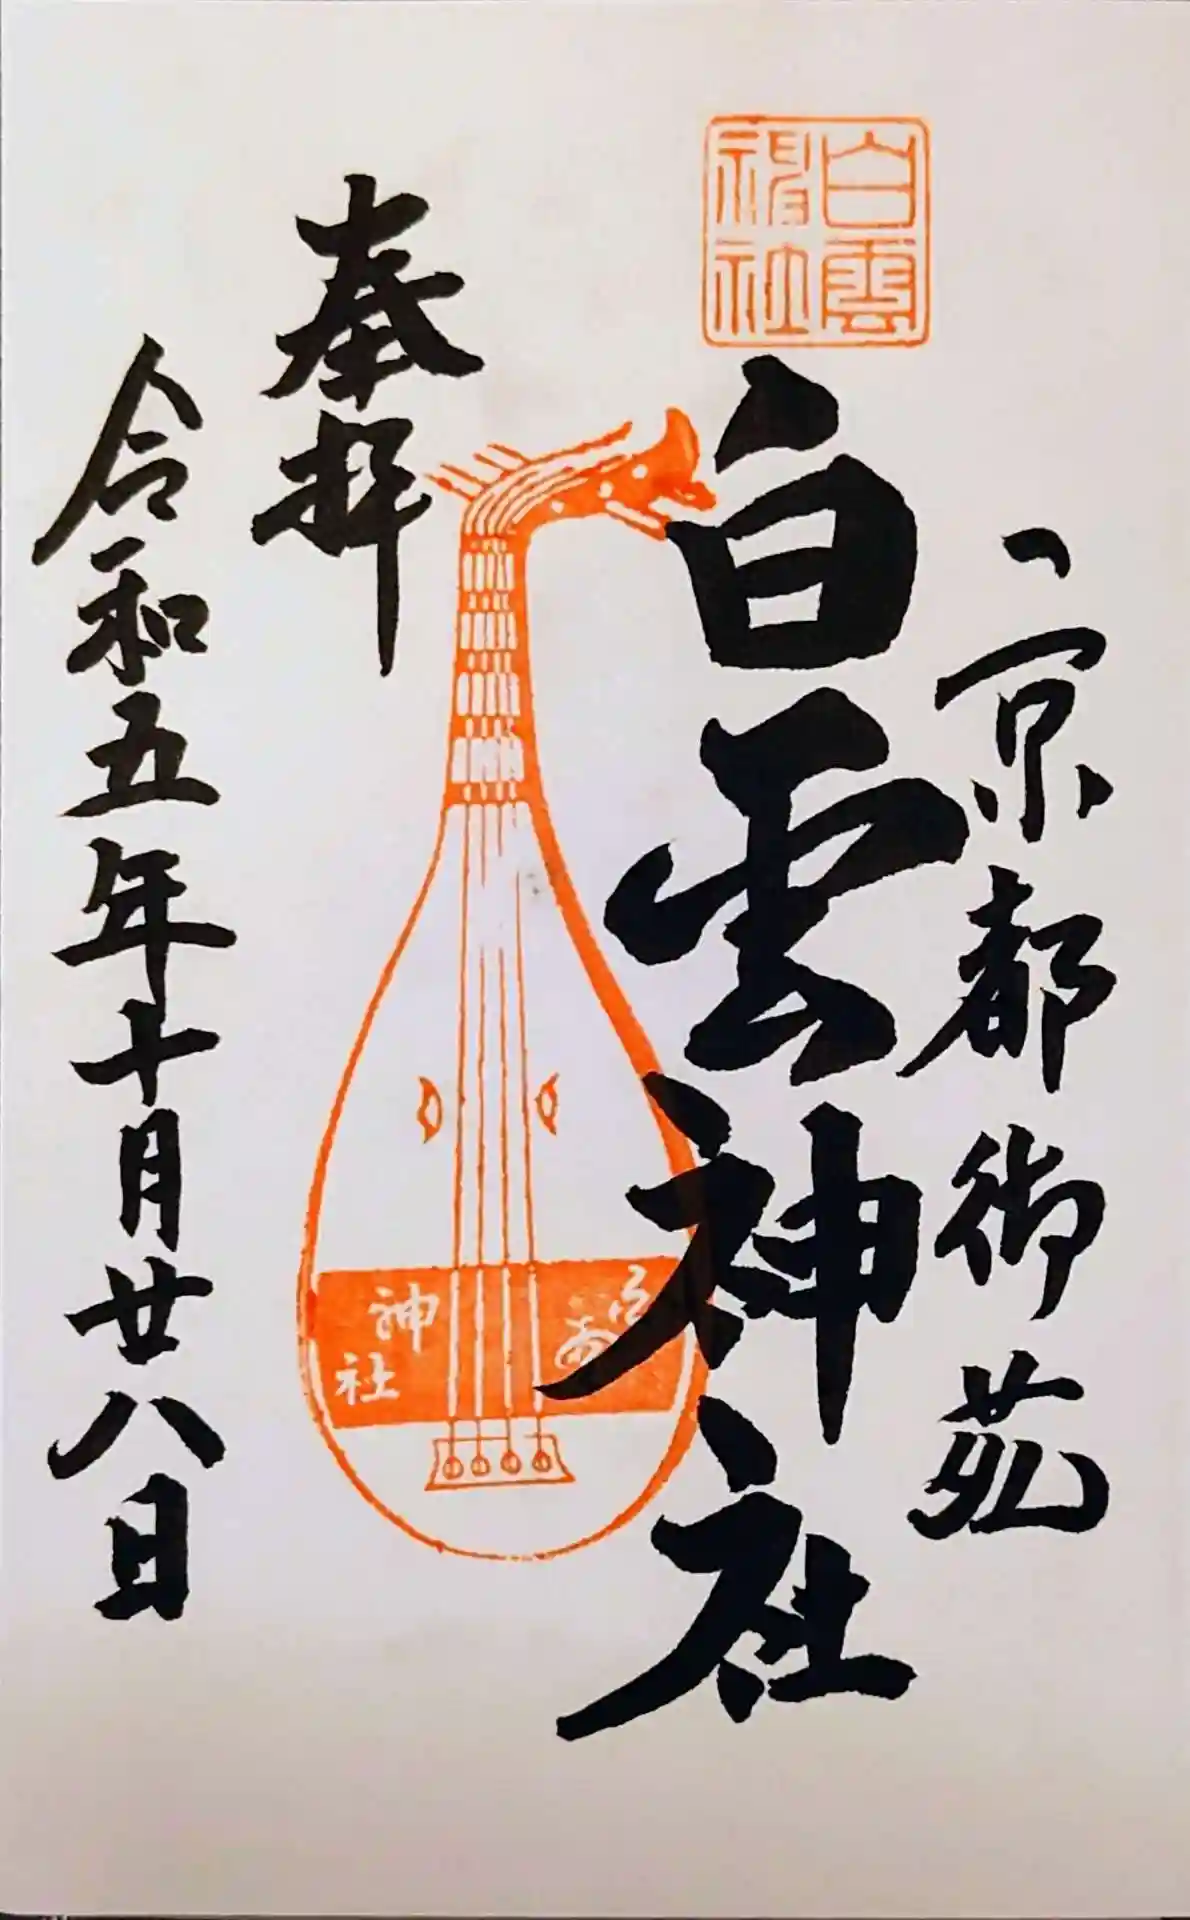 京都御苑
白雲
神社
白雲神社
奉拝
令和五年十月廿八日
神社